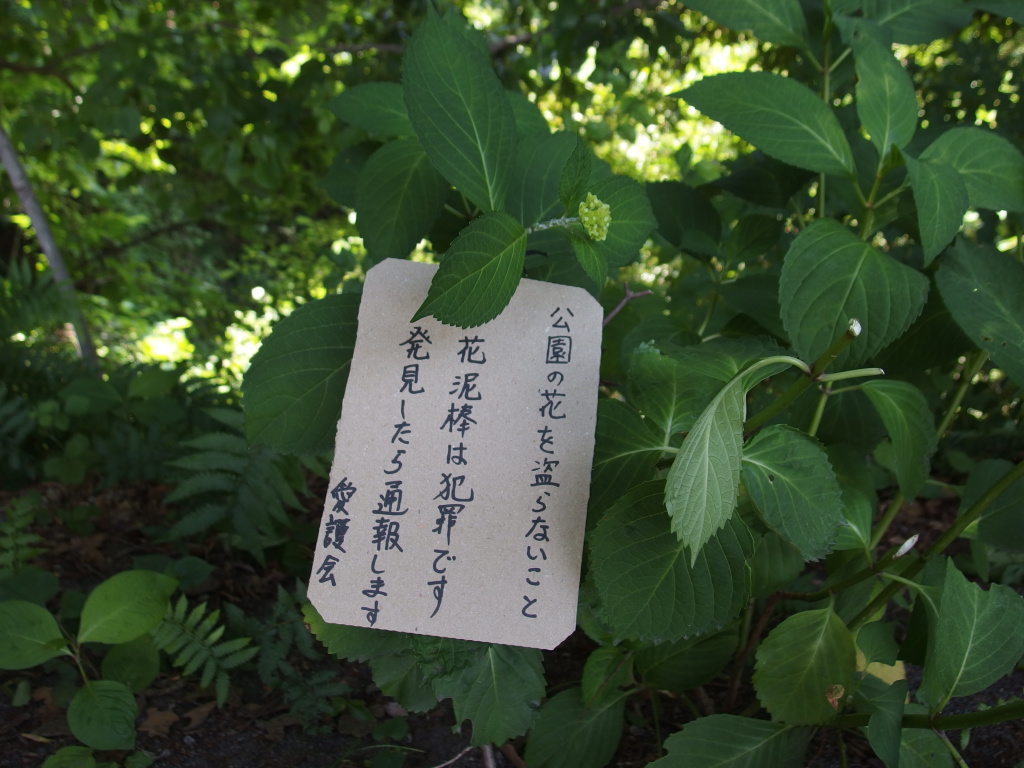 公園の花を盗らないこと
花泥棒は犯罪です
発見したら通報します
愛護会